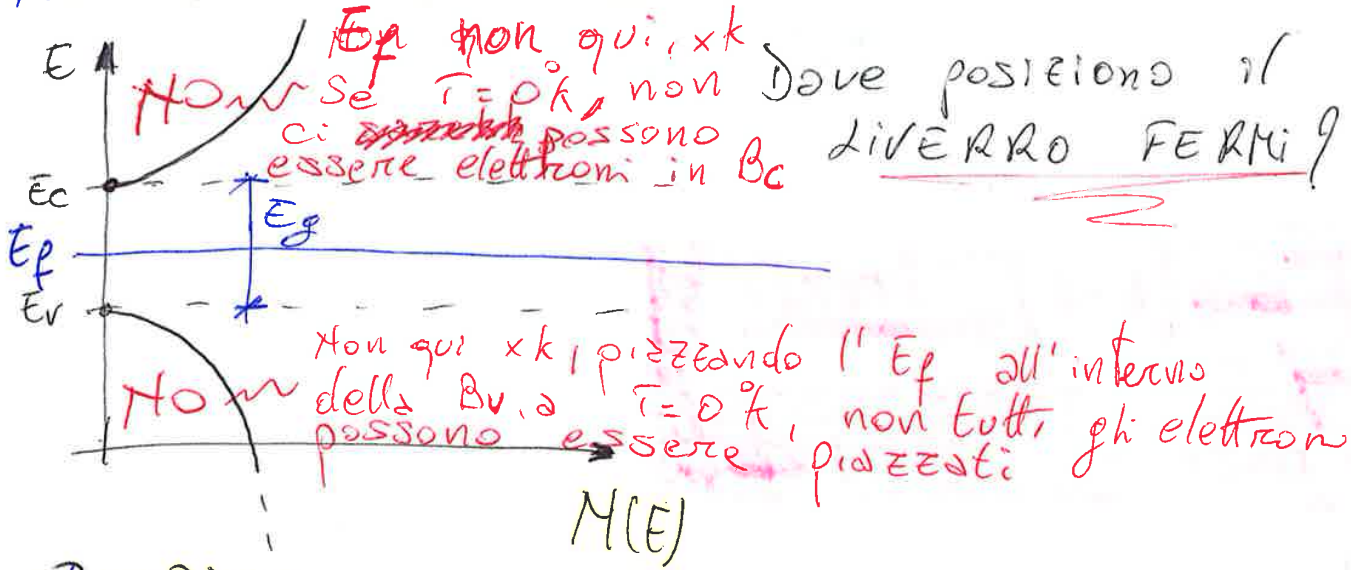 E
NO
Ef non qui, xk
se T=0°k, non
ci possono
essere elettroni in Bc
Dove posiziono il
LIVERRO FERMI?
Ec
Eg
Ef
Ev
NO
Non qui xk, piazzando l'Ef all'interno
della Bv, a T=0°k, non tutti gli elettron
possono essere piazzati
N(E)